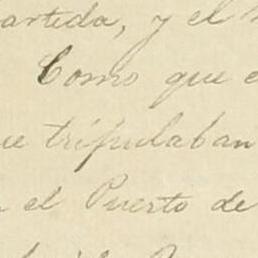 artida, y el
Como que e
ue tripulaban
el Puerto de